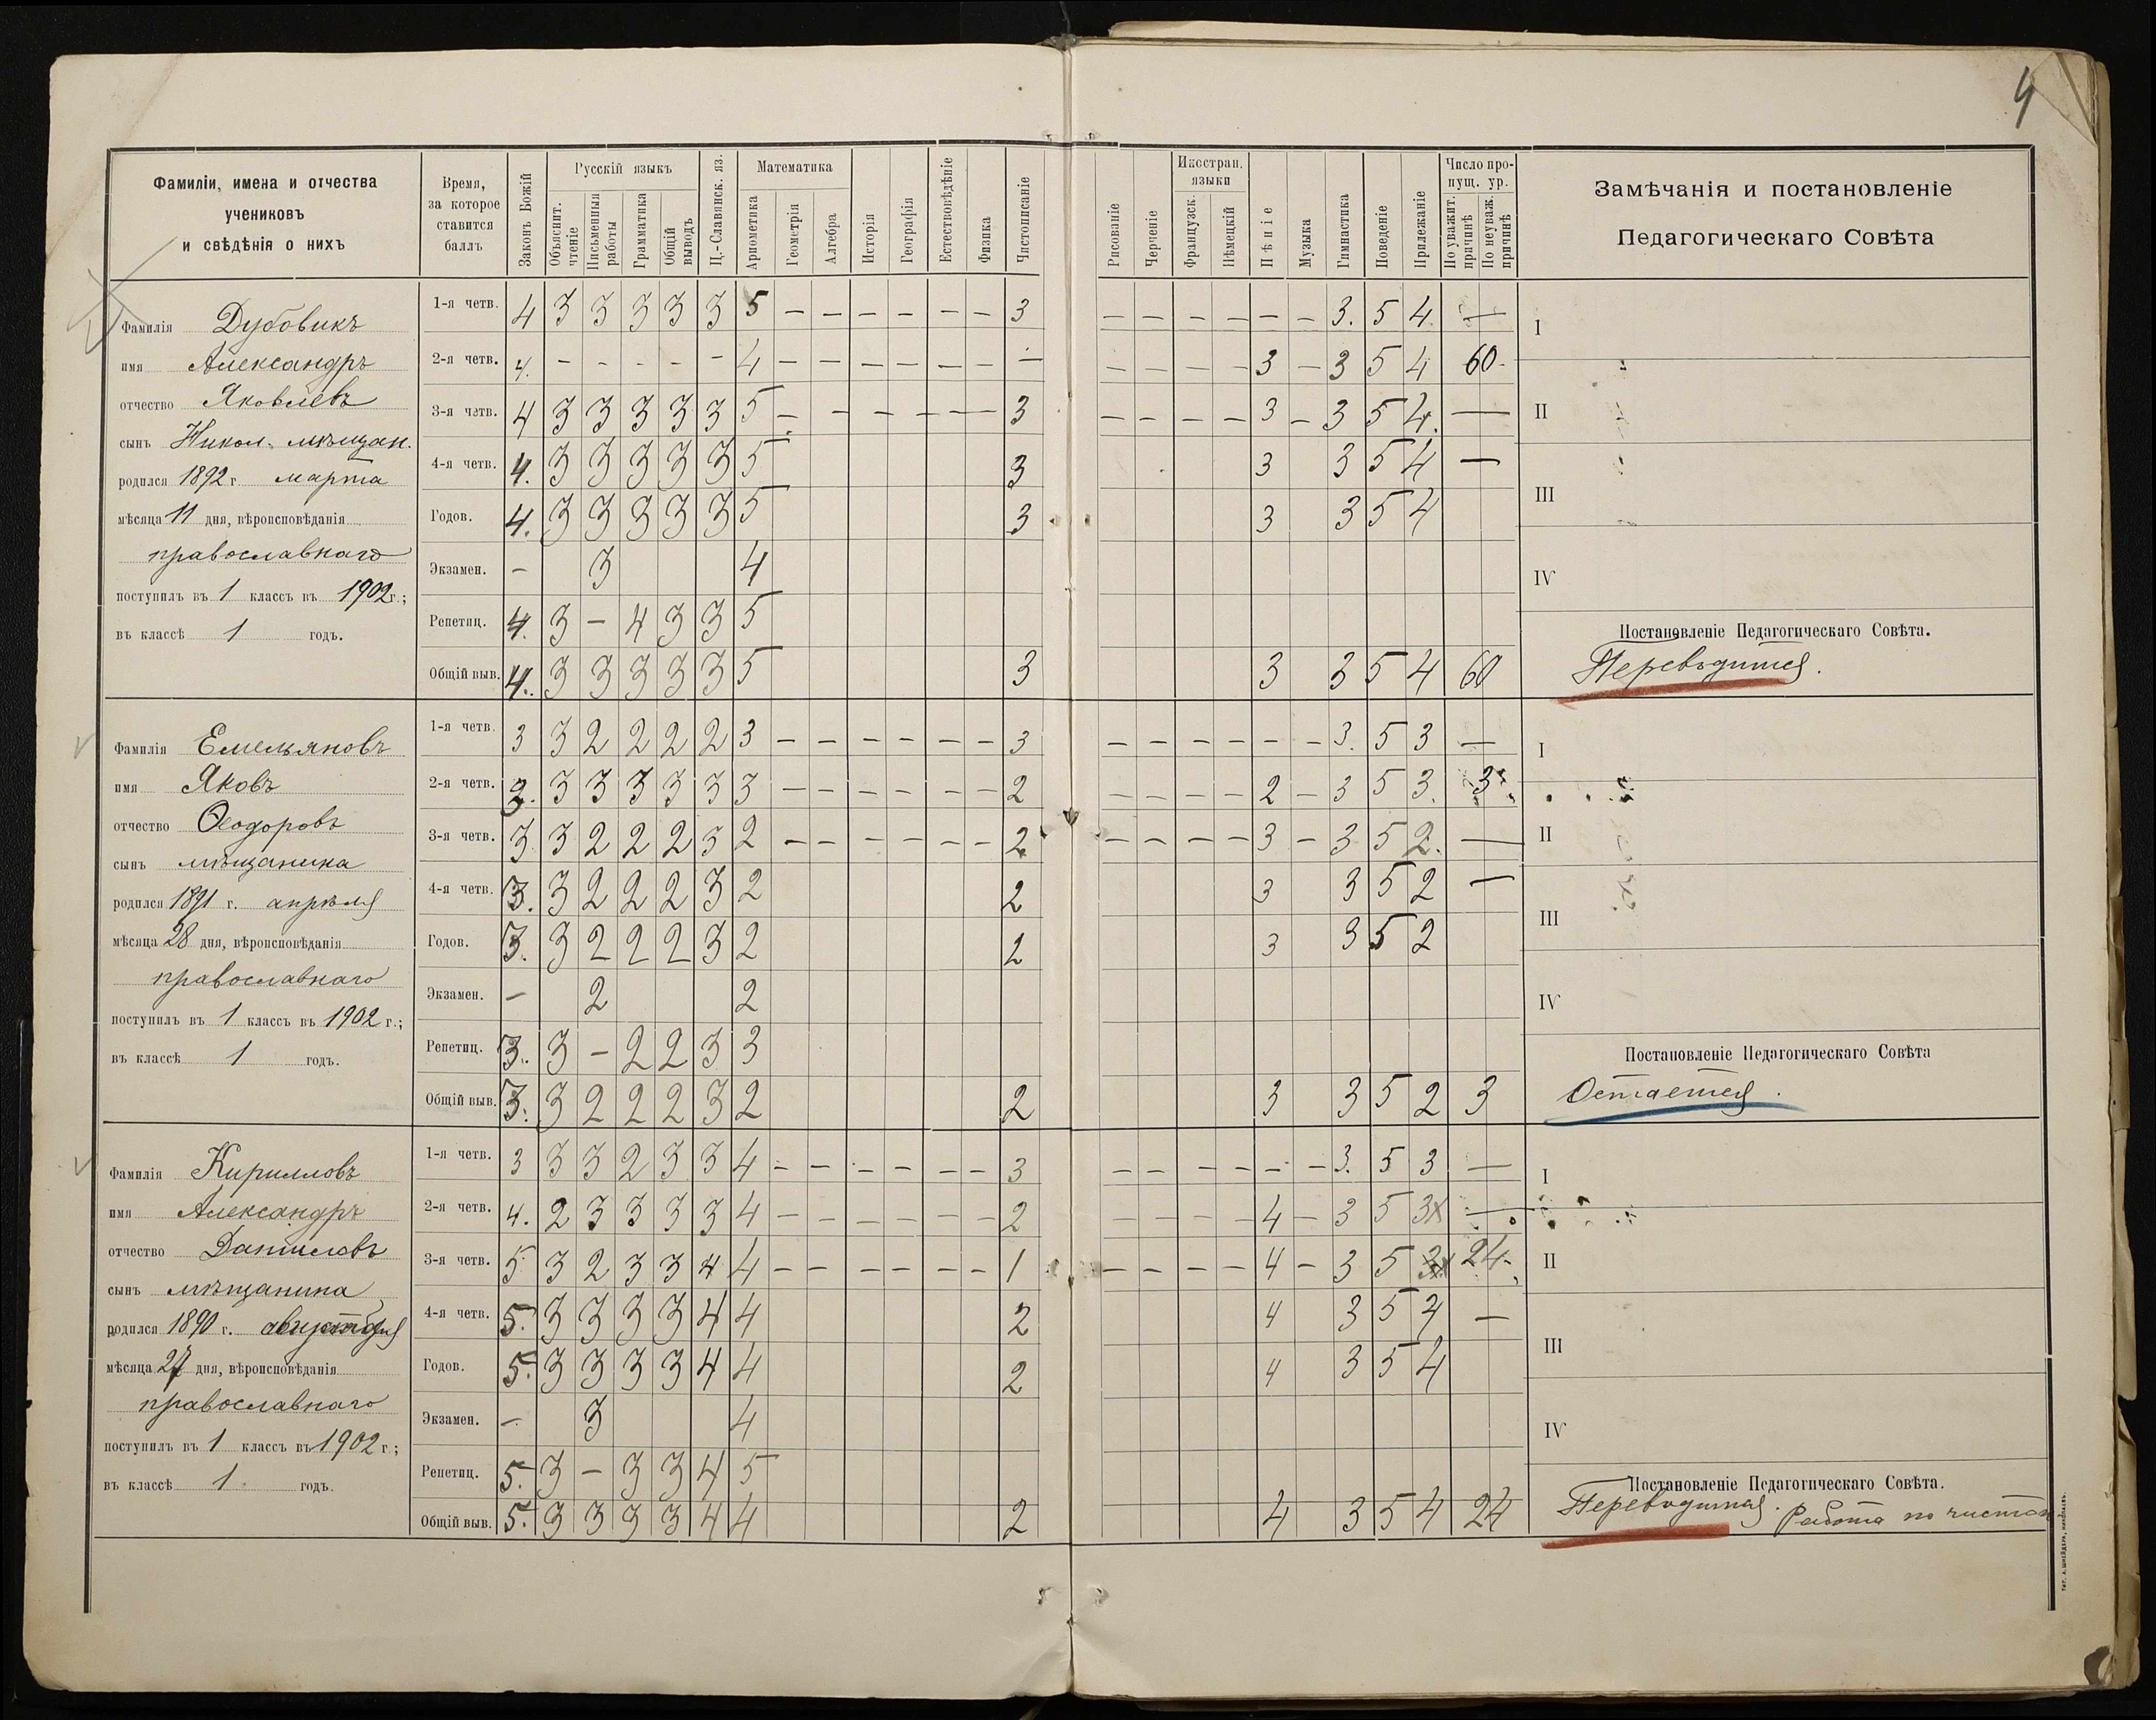 4
Фамиліи, имена и отчества
учениковъ
и свѣдѣнія о нихъ
Время,
за которое
ставится
баллъ
Законъ Божій
Русскій языкъ
Объяснит. чтеніе
Письменныя работы
Грамматика
Общій выводъ
Ц.-Славянск. яз.
Математика
Ариѳметика
Геометрія
Алгебра
Исторія
Географія
Естествовѣдѣніе
Физика
Чистописаніе
Рисованіе
Черченіе
Иностран. языки
Французск.
Нѣмецкій
Пѣніе
Музыка
Гимнастика
Поведеніе
Прилежаніе
Число про-
пущ. ур.
По уважит. причинѣ
По неуваж. причинѣ
Замѣчанія и постановленіе
Педагогическаго Совѣта
Фамилія Дубовикъ
имя Александръ
отчество Яковлевъ
сынъ Никол. мѣщан.
родился 1892 г. марта
мѣсяца 11 дня, вѣроисповѣданія
православнаго
поступилъ въ 1 классъ въ 1902 г.;
въ классѣ 1 годъ.
1-я четв. 4 3 3 3 3 3 5 – – – – – – 3 – – – – – – 3. 5 4. —
2-я четв. 4. – – – – – 4 – – – – – – – – – – – 3 – 3 5 4 60-
3-я четв. 4 3 3 3 3 3 5 – – – – – – 3 – – – – 3 – 3 5 4. —
4-я четв. 4. 3 3 3 3 3 5 3 3 3 5 4 —
Годов. 4. 3 3 3 3 3 5 3 3 3 5 4
Экзамен. – 3 4
Репетиц. 4. 3 – 4 3 3 5
Общій выв. 4. 3 3 3 3 3 5 3 3 3 5 4 60
I
II
III
IV
Постановленіе Педагогическаго Совѣта.
Переводится.
Фамилія Емельяновъ
имя Яковъ
отчество Ѳеодоровъ
сынъ мѣщанина
родился 1891 г. апрѣля
мѣсяца 28 дня, вѣроисповѣданія
православнаго
поступилъ въ 1 классъ въ 1902 г.;
въ классѣ 1 годъ.
1-я четв. 3 3 2 2 2 2 3 – – – – – – 3 – – – – – – 3. 5 3 —
2-я четв. 3. 3 3 3 3 3 3 – – – – – – 2 – – – – 2 – 3 5 3. 3
3-я четв. 3 3 2 2 2 3 2 – – – – – – 2. – – – – 3 – 3 5 2. —
4-я четв. 3. 3 2 2 2 3 2 2 3 3 5 2 —
Годов. 3. 3 2 2 2 3 2 2 3 3 5 2
Экзамен. – 2 2
Репетиц. 3. 3 – 2 2 3 3
Общій выв. 3. 3 2 2 2 3 2 2 3 3 5 2 3
I
II
III
IV
Постановленіе Педагогическаго Совѣта
Остается.
Фамилія Кирилловъ
имя Александръ
отчество Даниловъ
сынъ мѣщанина
родился 1890 г.
мѣсяца 27 дня, вѣроисповѣданія
православнаго
поступилъ въ 1 классъ въ 1902 г.;
въ классѣ 1 годъ.
1-я четв. 3 3 3 2 3 3 4 – – – – – – 3 – – – – – – 3. 5 3 —
2-я четв. 4. 2 3 3 3 3 4 – – – – – – 2 – – – – 4 – 3 5 3x —
3-я четв. 5 3 2 3 3 4 4 – – – – – – 1 – – – – 4 – 3 5 24-
4-я четв. 5. 3 3 3 3 4 4 2 4 3 5 4 —
Годов. 5. 3 3 3 3 4 4 2 4 3 5 4
Экзамен. – 3 4
Репетиц. 5. 3 – 3 3 4 5
Общій выв. 5. 3 3 3 3 4 4 2 4 3 5 4 24
I
II
III
IV
Постановленіе Педагогическаго Совѣта.
Переводится. Работа по чистоп